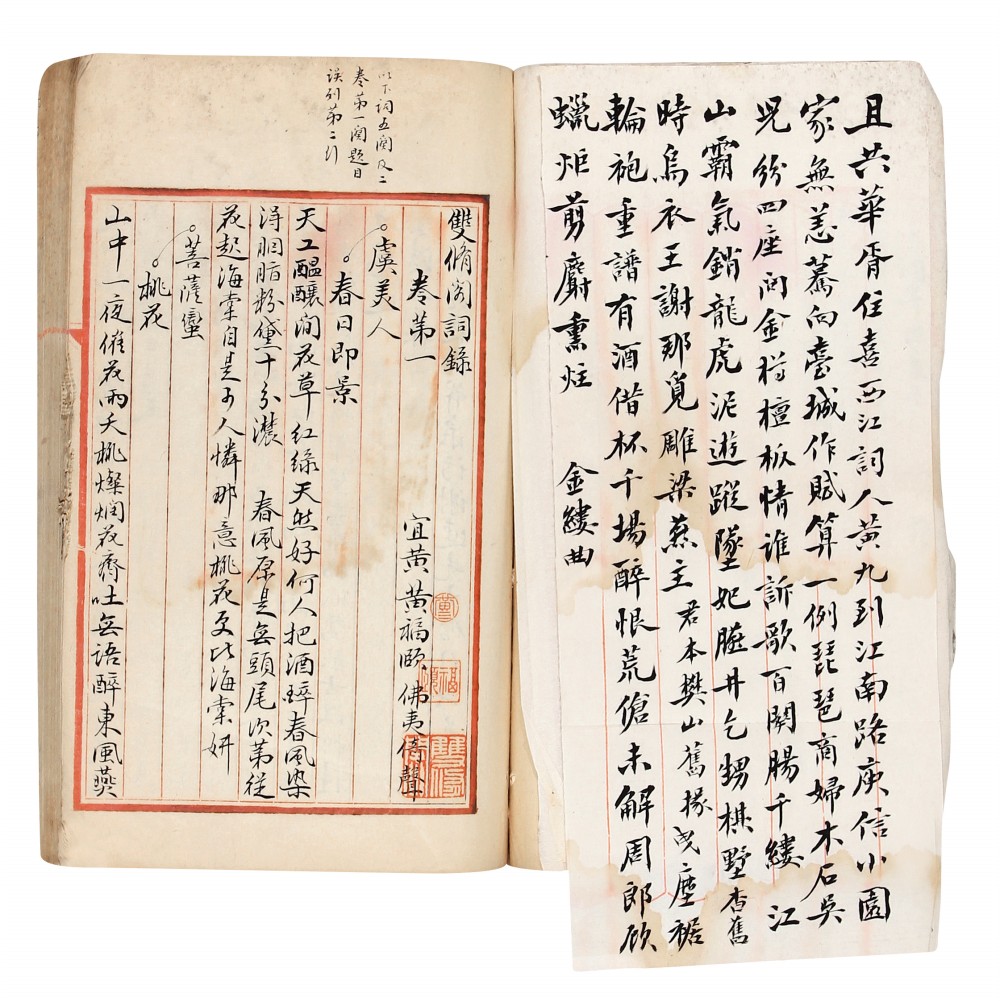 且共華胥住喜西江詞人黃九到江南路庾信小園
家無恙驀向臺城作賦算一例琵琶商婦木石吳
兒紛四座问金樽檀板情誰訴歌百闋腸千縷 江
山霸氣銷龍虎泥遊蹤墜妃臙井乞甥棋墅杳舊
時烏衣王謝那覓雕梁燕主君本樊山舊掾曳塵裾
輪袍重譜有酒借杯千場醉恨荒傖未解周郎顧
蠟炬剪麝熏炷 金縷曲
以下詞五闋及二
卷第一闋題目
誤列第二行
雙脩閣詞錄
卷第一
宜黃黃福頤佛夷倚聲
虞美人
春日即景
天工醞釀閒花草 紅綠天然好何人把酒酹春風染
淂胭脂粉黛十分濃 春風原是無頭尾次第從
花起海棠自是可人憐那意桃花更比海棠妍
菩薩蠻
桃花
山中一夜催花雨夭桃燦爛花齊吐無語醉東風燕